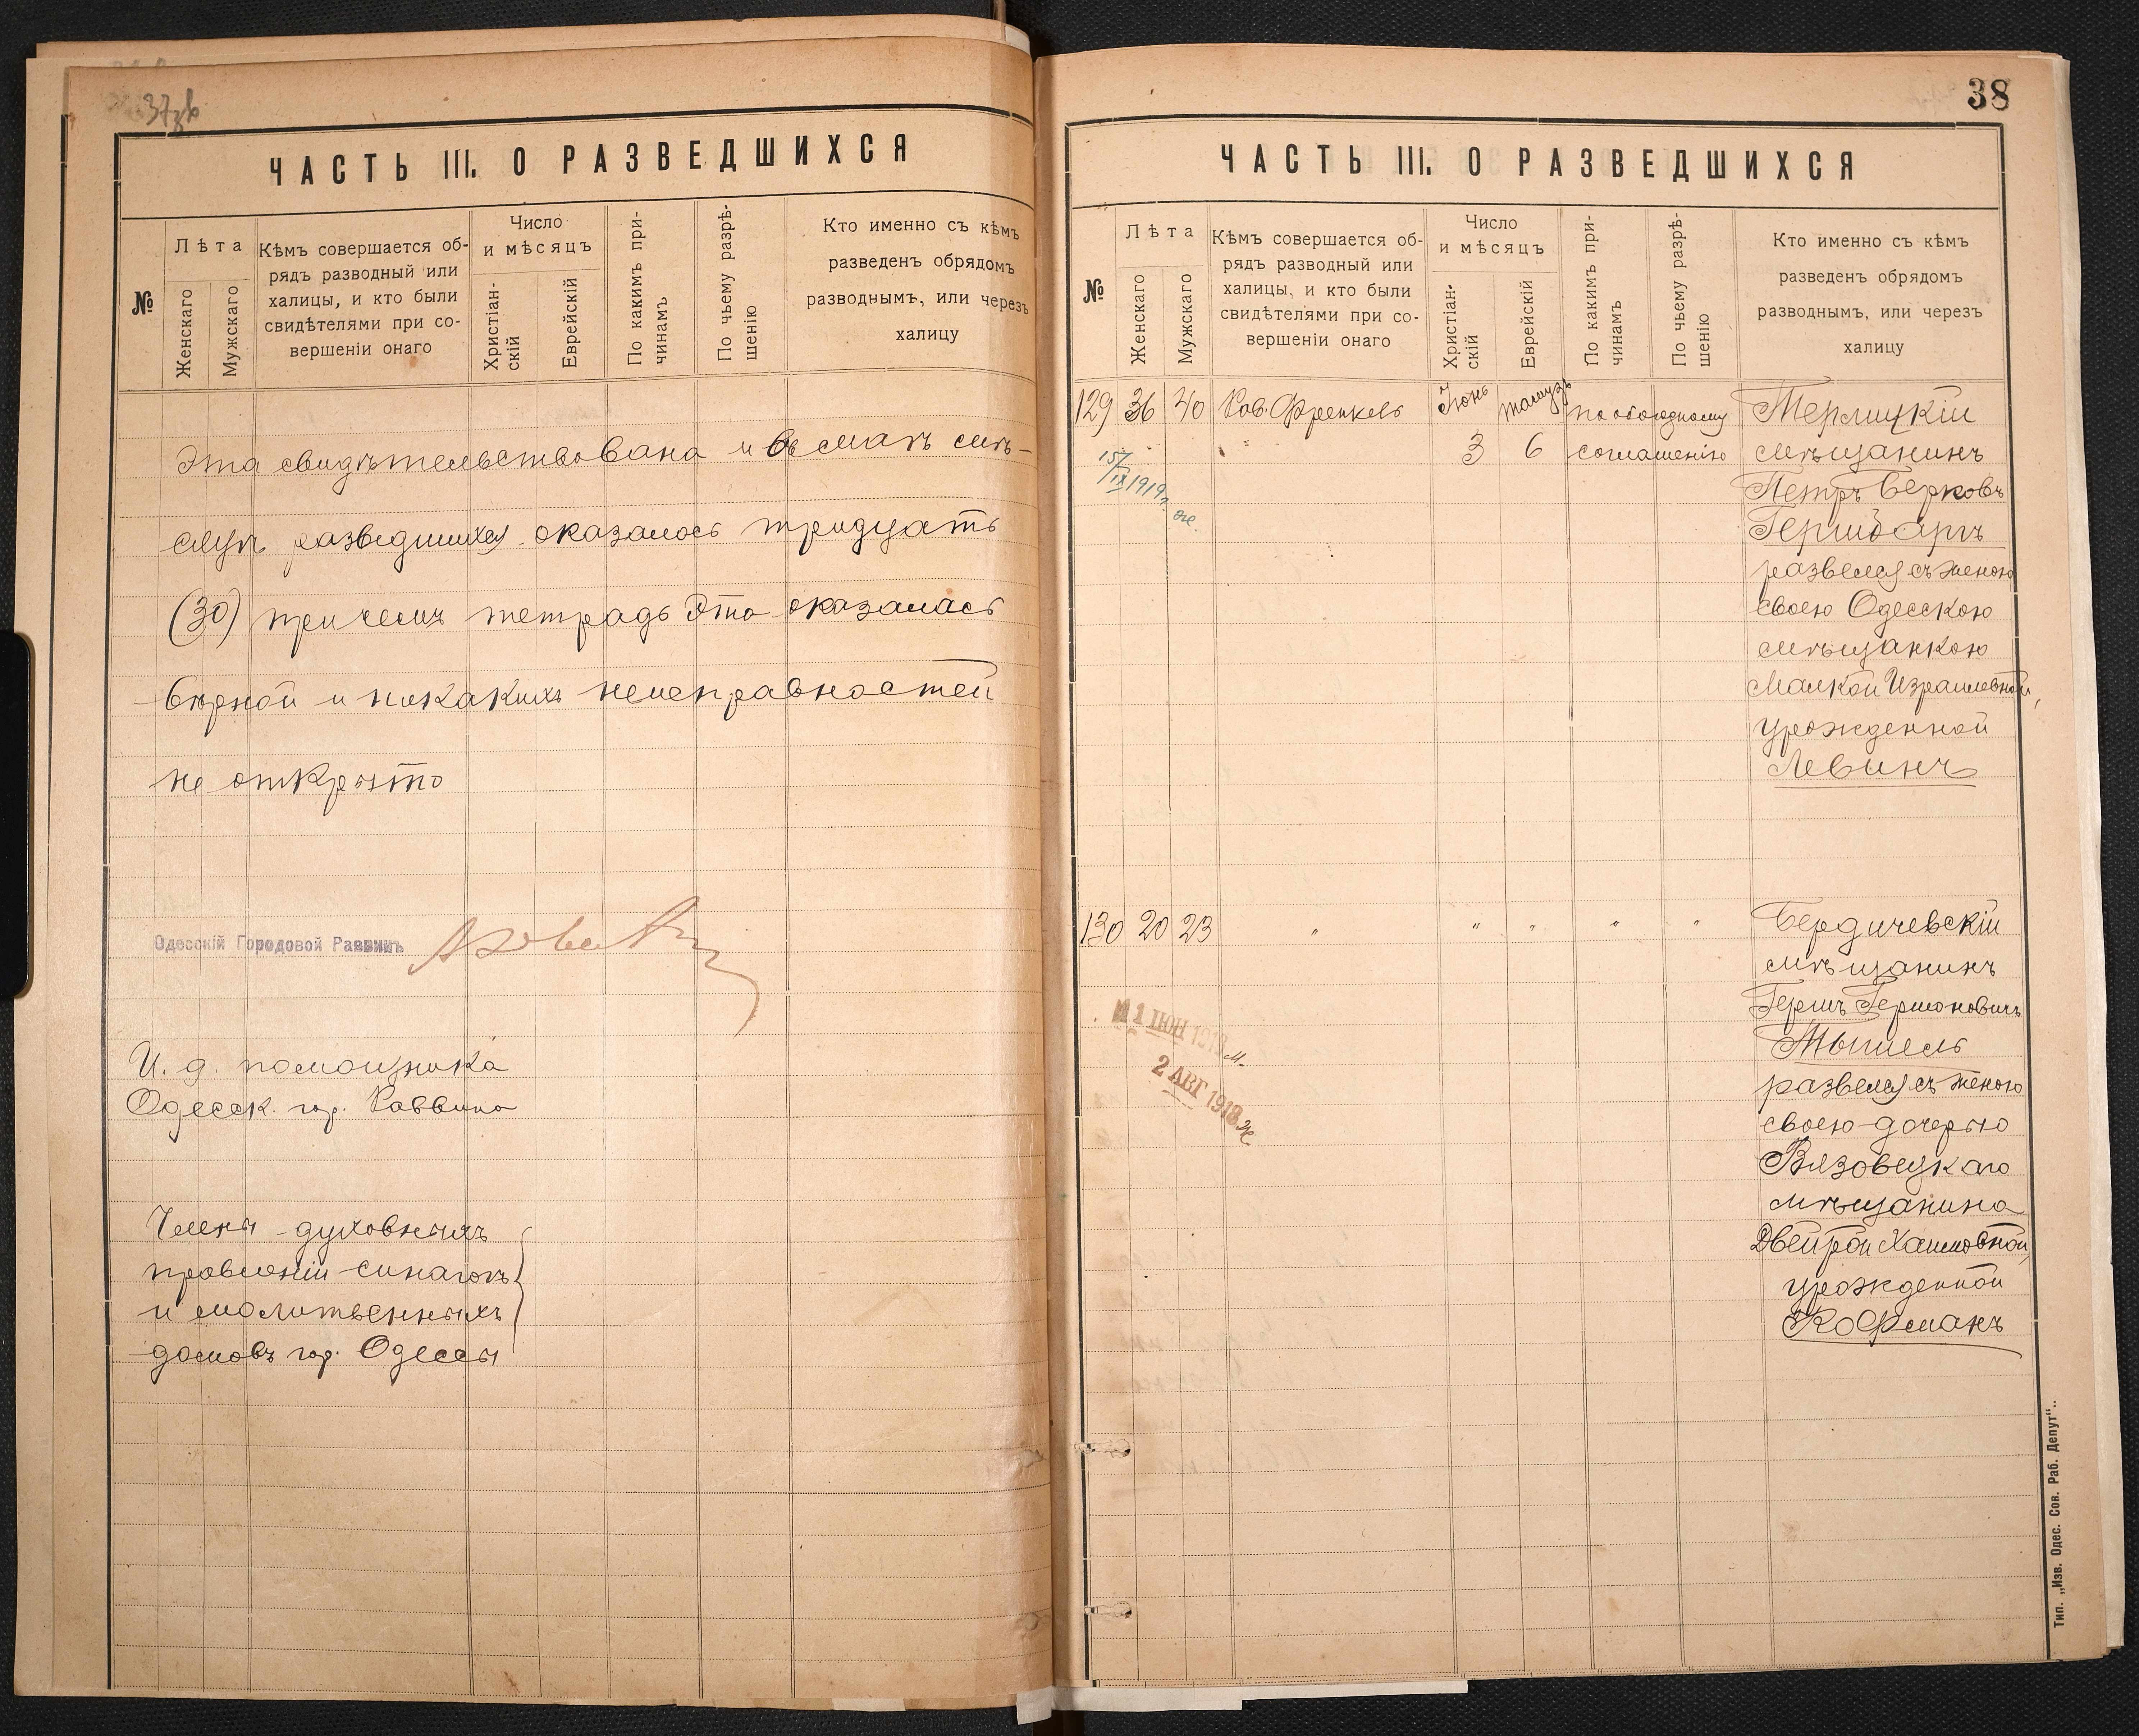 37 зв
ЧАСТЬ III. О РАЗВЕДШИХСЯ
№
Лѣта
Женскаго
Мужскаго
Кѣмъ совершается об-
рядъ разводный или
халицы, и кто были
свидѣтелями при со-
вершеніи онаго
Число
и мѣсяцъ
Христіан-
скій
Еврейскій
По какимъ при-
чинамъ
По чьему разрѣ-
шенію
Кто именно съ кѣмъ
разведенъ обрядомъ
разводнымъ, или черезъ
халицу
Эта свидѣтельствована и въ маѣ мѣ-
сяцѣ разведшихся оказалось тридцать
(30) причемъ тетрадь эта оказалась
вѣрной и никакихъ неисправностей
не открыто
Одесскій Городовой Раввинъ
И. д. помощника
Одесск. гор. Раввина
Члены духовныхъ
правленій синагогъ
и молитвенныхъ
домовъ гор. Одессы
38
ЧАСТЬ III. О РАЗВЕДШИХСЯ
№
Лѣта
Женскаго
Мужскаго
Кѣмъ совершается об-
рядъ разводный или
халицы, и кто были
свидѣтелями при со-
вершеніи онаго
Число
и мѣсяцъ
Христіан-
скій
Еврейскій
По какимъ при-
чинамъ
По чьему разрѣ-
шенію
Кто именно съ кѣмъ
разведенъ обрядомъ
разводнымъ, или черезъ
халицу
129 36 40 Рав. Френкель Іюнь Тамузъ по обоюдному Терлицкій
" 3 6 соглашенію мѣщанинъ
15/IX 1919 г.
Петръ Берковъ
Гершбергъ
развелся съ женою
своею Одесскою
мѣщанкою
Малкой Израилевной,
урожденной
Левинъ
130 20 23 " " " " " Бердичевскій
мѣщанинъ
Гершъ Гершоновичъ
Тышель
развелся съ женою
своею дочерью
Вязовецкаго
мѣщанина
Двейрой Хаимовной,
урожденной
Кофманъ
11 ІЮН 1918 м.
2 АВГ 1918 ж
Тип. „Изв. Одес. Сов. Раб. Депут“..